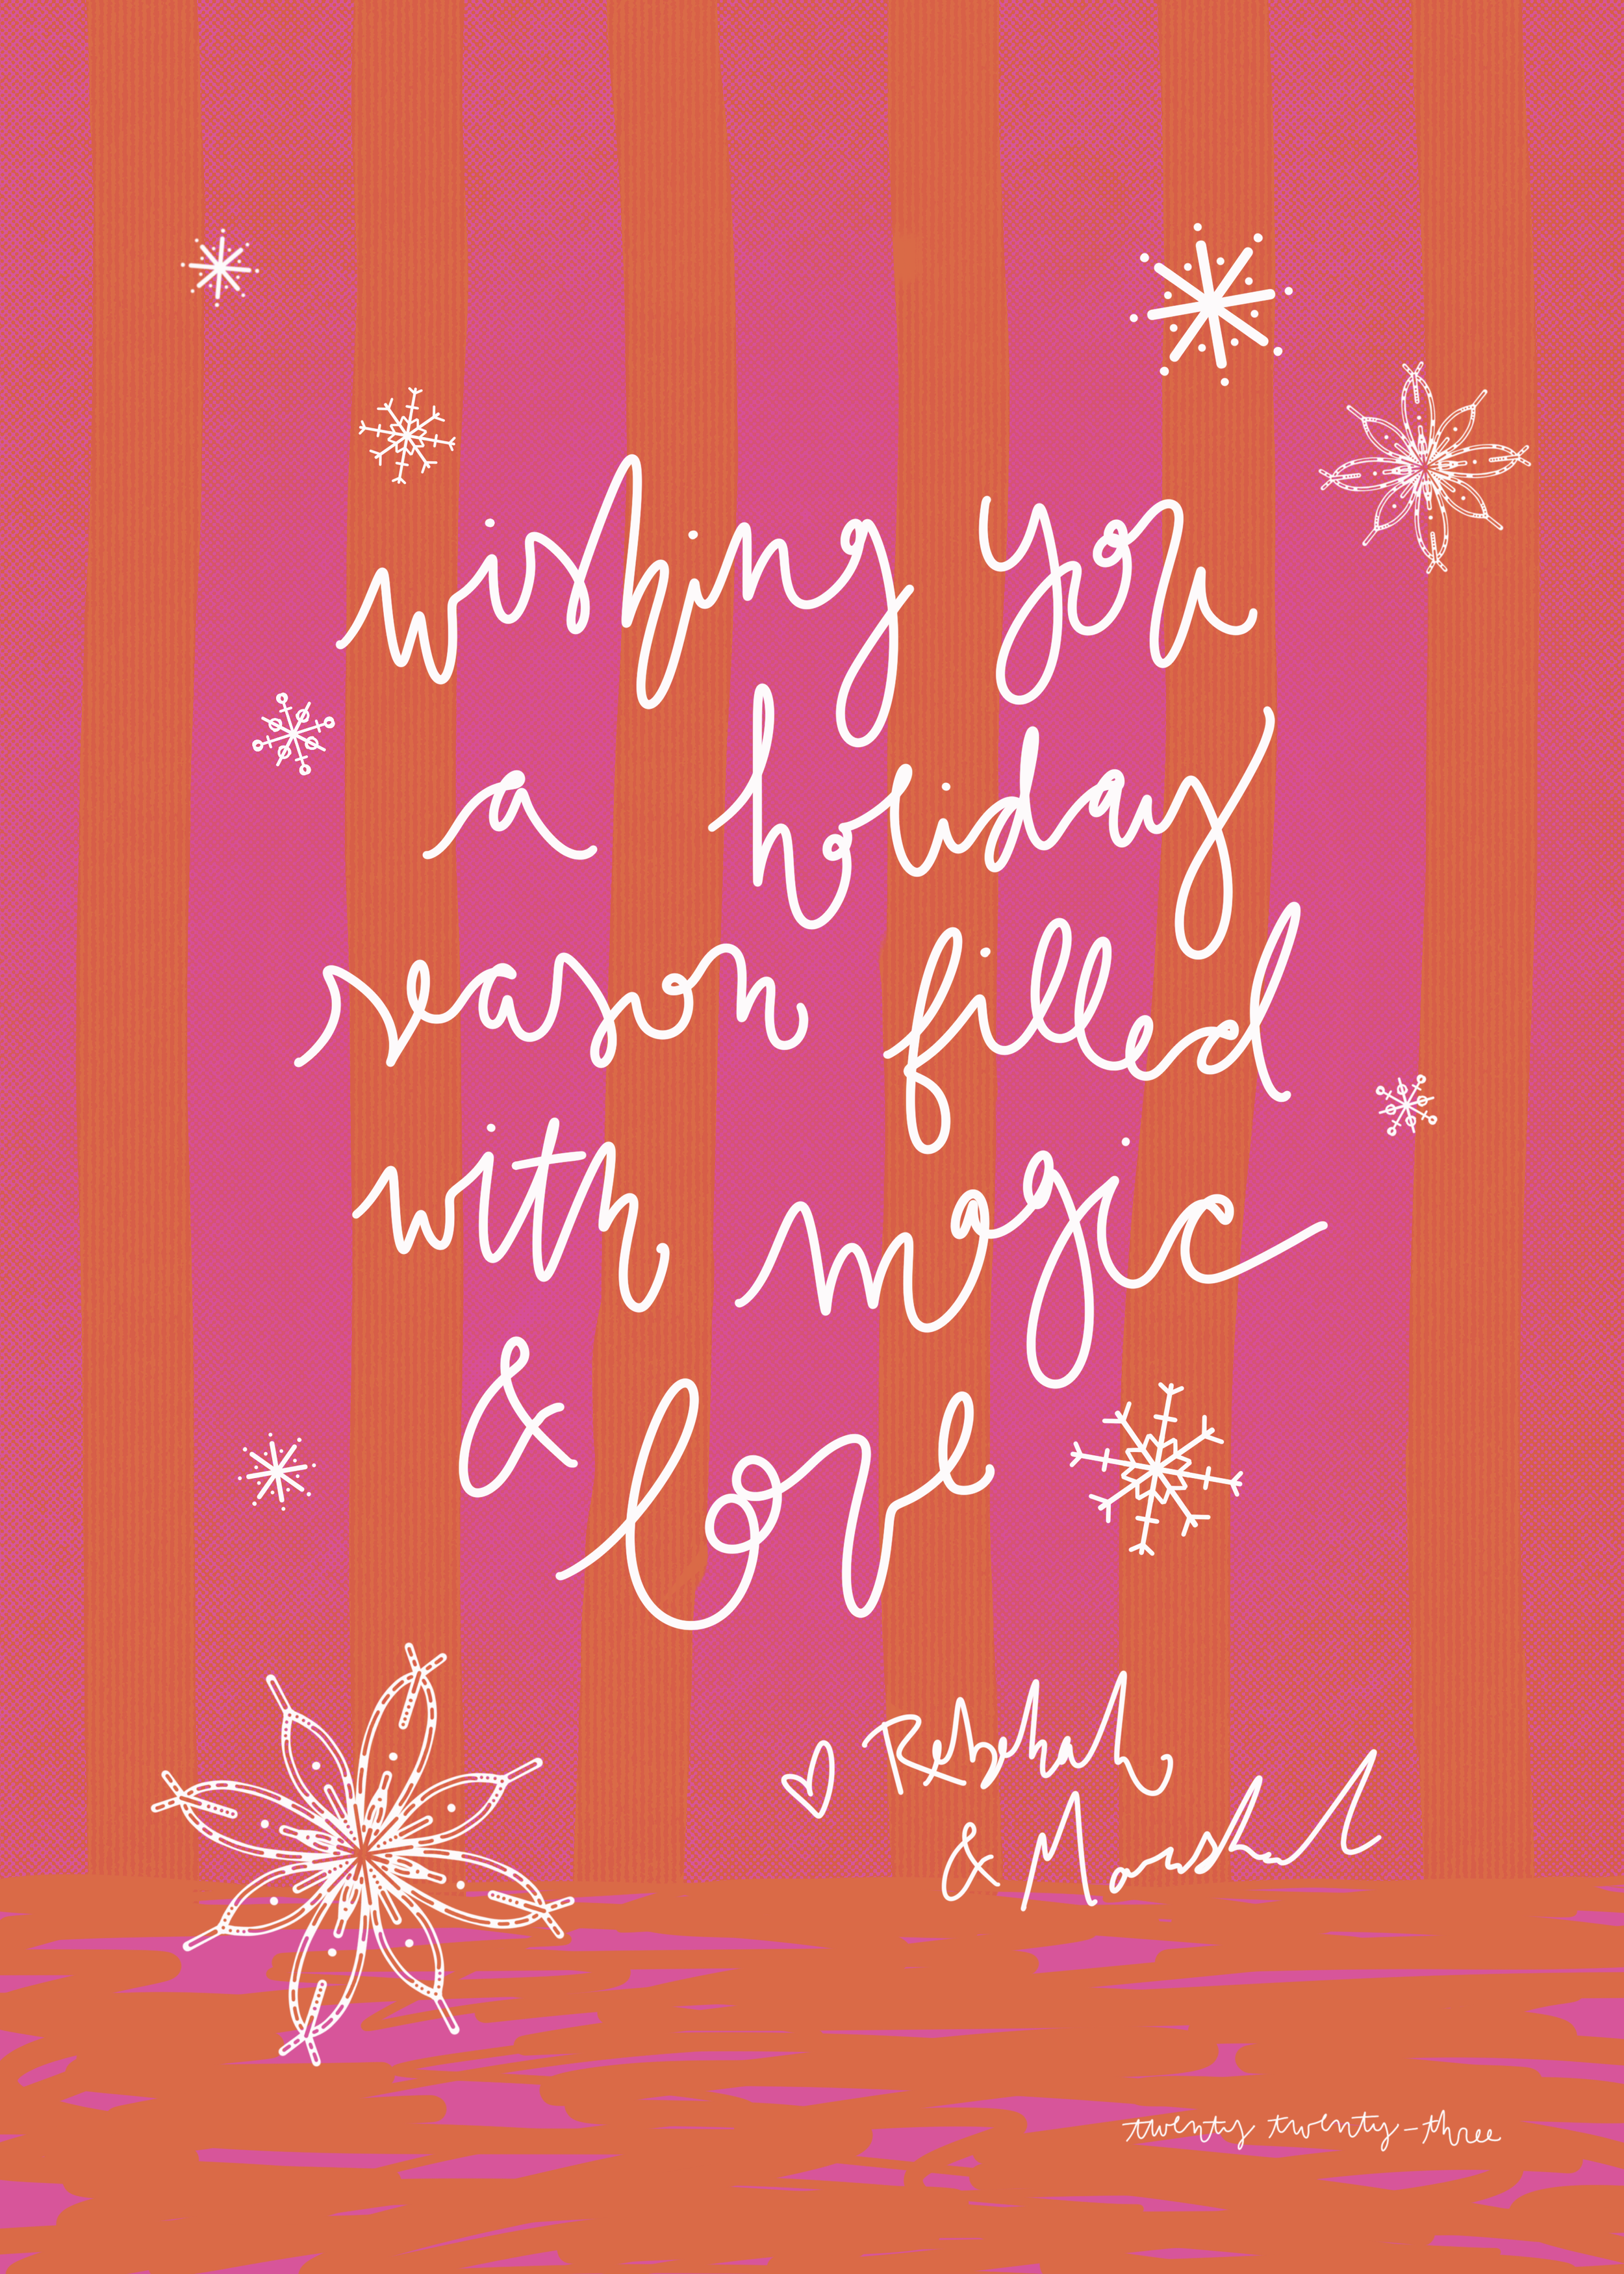 wishing you
a holiday
season filled
with magic
& love
Rebekah
& Marshal
twenty twenty-three